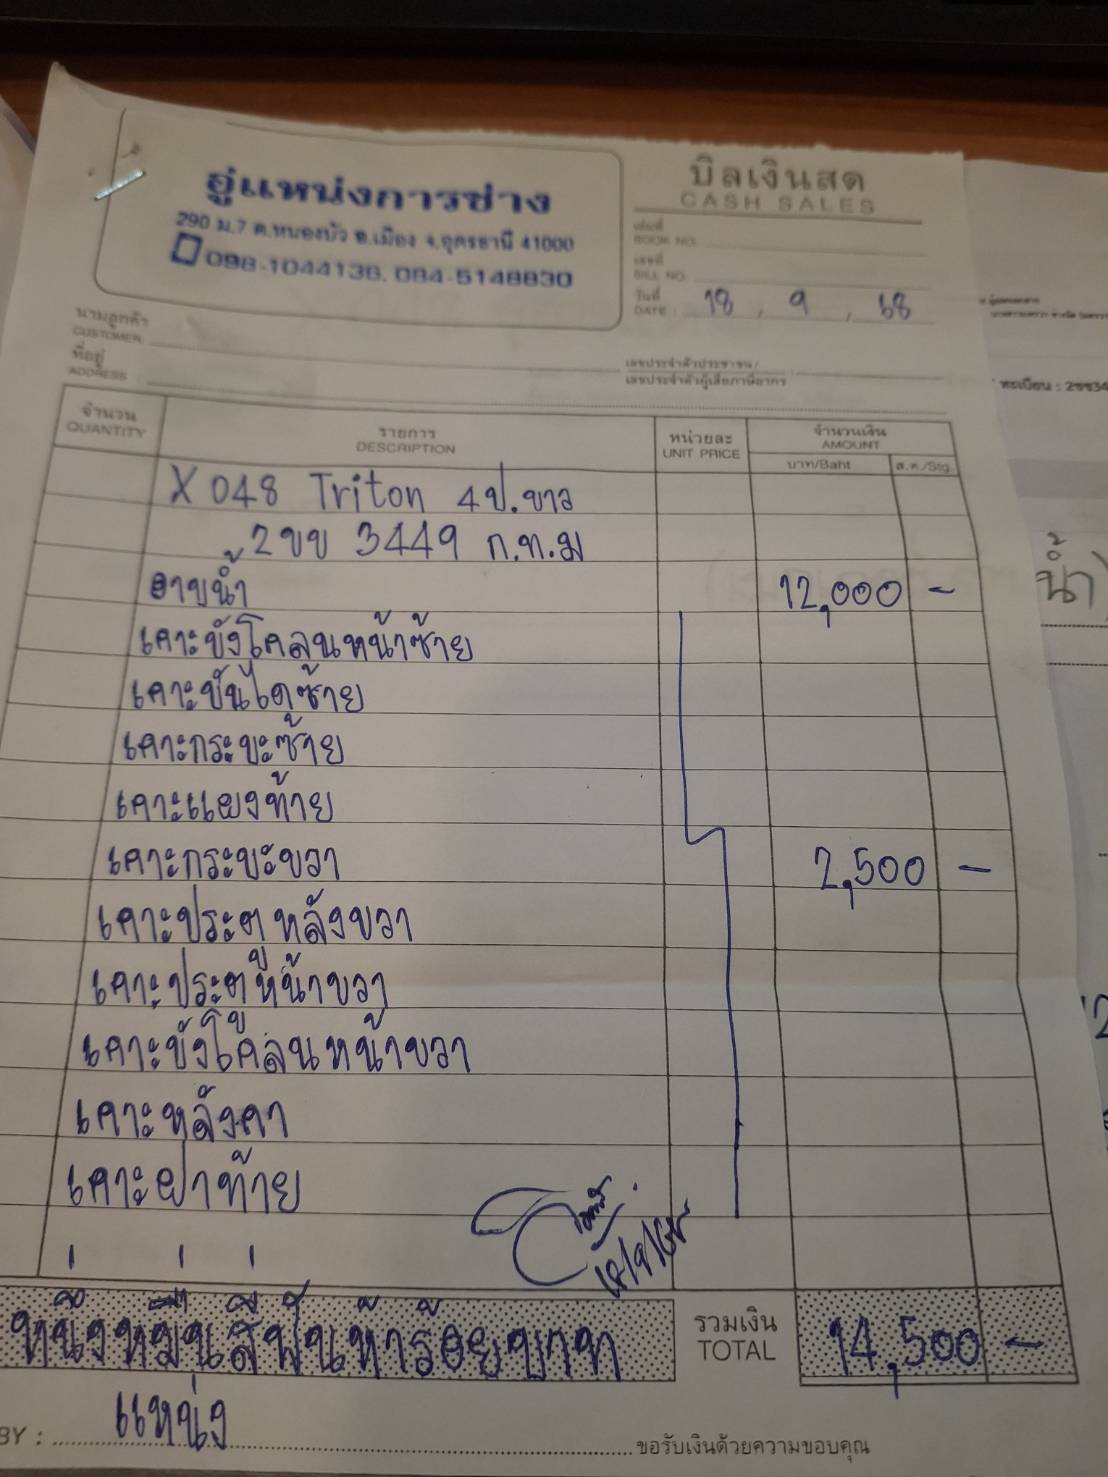 อู่แหน่งการช่าง
290 ม.7 ต.หนองบัว อ.เมือง จ.อุดรธานี 41000
098-1044136, 084-5148830
บิลเงินสด
CASH SALES
เล่มที่
BOOK NO.
เลขที่
BILL NO.
วันที่
DATE : 18 , 9 , 68
นามลูกค้า
CUSTOMER
ที่อยู่
ADDRESS
เลขประจำตัวประชาชน/
เลขประจำตัวผู้เสียภาษีอากร
ทะเบียน : 2ขข34
จำนวน
QUANTITY
รายการ
DESCRIPTION
หน่วยละ
UNIT PRICE
จำนวนเงิน
AMOUNT
บาท/Baht
ส.ต./Stg.
X 048 Triton 4ป.ขาว
2ขข 3449 ก.ท.ม
อาบน้ำ 12,000 -
น้ำ)
เคาะบังโคลนหน้าซ้าย
เคาะบันไดซ้าย
เคาะกระบะซ้าย
เคาะแผงท้าย
เคาะกระบะขวา 2,500 -
เคาะประตูหลังขวา
เคาะประตูหน้าขวา
เคาะบังโคลนหน้าขวา
เคาะหลังคา
เคาะฝาท้าย
หนึ่งหมื่นสี่พันห้าร้อยบาท
รวมเงิน
TOTAL
14,500 -
แหน่ง
BY :
ขอรับเงินด้วยความขอบคุณ